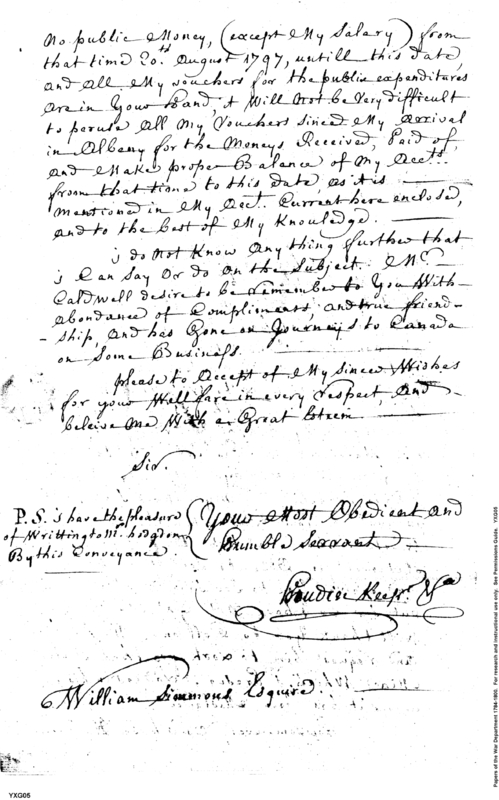 No public Money, (except My Salary) from
that time 20.th August 1797, untill this date,
and all My vouchers for the public expenditures
are in Your hand; it Will Not be Very difficult
to peruse All My Vouchers since My Arrival
in Albany for the Moneys Received, Paid of
and Make proper Balance of My Accts.
from that time to this date, as it is
mentioned in My Acct. Current here enclosed,
and to the best of My Knowledge.
j do Not Know Any thing further that
j Can Say Or do On the Subject. Mr.
Caldwell desire to be remember to You With
abondance of Compliments, and true friend-
-ship, and has Gone on Journeys to Canada
on Some Business.
please to Accept of My Sincer Wishes
for your Wellfare in every respect, And
beleive me With a Great Esteem
Sir.
P.S. j have the pleasure
of Writting to Mr. hogdon
By this Conveyance
Your Most Obedient and
Humble Servant
Keepr.
William Simmons Esquire.
Papers of the War Department 1784-1800. For research and instructional use only. See Permissions Guide. YXG05
YXG05